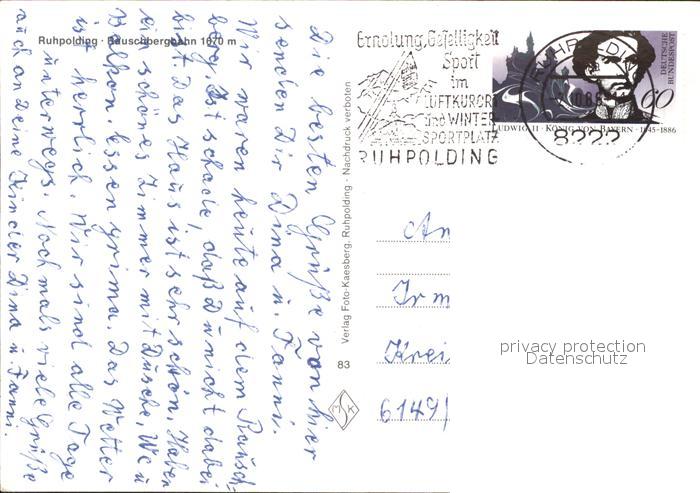 Ruhpolding · Rauschbergbahn 1670 m
Die besten Grüße von hier
senden Dir Dina u. Fanni.
Wir waren heute auf dem Rausch-
berg. Ist schade, daß Du nicht dabei
bist. Das Haus ist sehr schön. Haben
ein schönes Zimmer mit Dusche, Wc u
Balkon. Essen prima. Das Wetter
ist herrlich. Wir sind alle Tage
unterwegs. Nochmals viele Grüße
auch an Deine Kinder Dina u Fanni.
Verlag Foto-Kaesberg, Ruhpolding - Nachdruck verboten
83
Erholung, Geselligkeit
Sport
im
LUFTKURORT
und WINTER
SPORTPLATZ
RUHPOLDING
RUHPOLDIN
8222
DEUTSCHE
BUNDESPOST
60
LUDWIG II · KÖNIG VON BAYERN · 1845-1886
An
Irm
Krei
6149/
privacy protection
Datenschutz